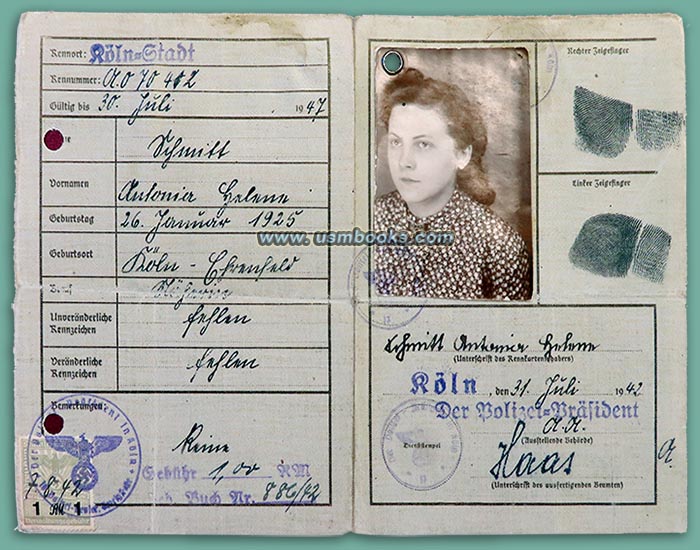 Kennort: Köln-Stadt
Kennnummer: A 0 70 412
Gültig bis 30. Juli 1947
Schmitt
Vornamen Antonia Helene
Geburtstag 26. Januar 1925
Geburtsort Köln-Ehrenfeld
Beruf
Unveränderliche Kennzeichen fehlen
Veränderliche Kennzeichen fehlen
Bemerkungen:
keine
Gebühr 1,00 RM
Geb. Buch Nr. 886/42
7.8.42
1 RM 1
Verwaltungsgebühr
www.usmbooks.com
Rechter Zeigefinger
Linker Zeigefinger
Schmitt Antonia Helene
(Unterschrift des Kennkarteninhabers)
Köln, den 31. Juli 1942
Der Polizei-Präsident
(Ausstellende Behörde)
Dienststempel
Haas
(Unterschrift des ausfertigenden Beamten)